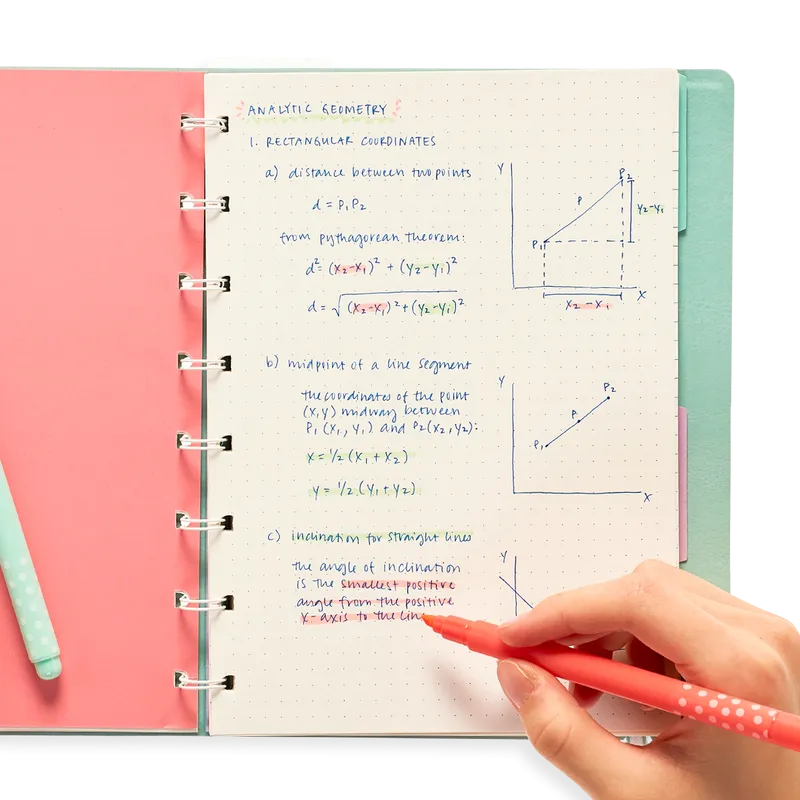 ANALYTIC GEOMETRY
1. RECTANGULAR COORDINATES
a) distance between two points
d = P₁P₂
from pythagorean theorem:
d² = (x₂-x₁)² + (y₂-y₁)²
d = √(x₂-x₁)² + (y₂-y₁)²
Y
P₂
P
P₁
y₂-y₁
x₂-x₁
X
b) midpoint of a line segment
the coordinates of the point
(x,y) midway between
P₁(x₁,y₁) and P₂(x₂,y₂):
x = ½(x₁+x₂)
y = ½(y₁+y₂)
Y
P₂
P
P₁
X
c) inclination for straight lines
the angle of inclination
is the smallest positive
angle from the positive
x-axis to the line
Y